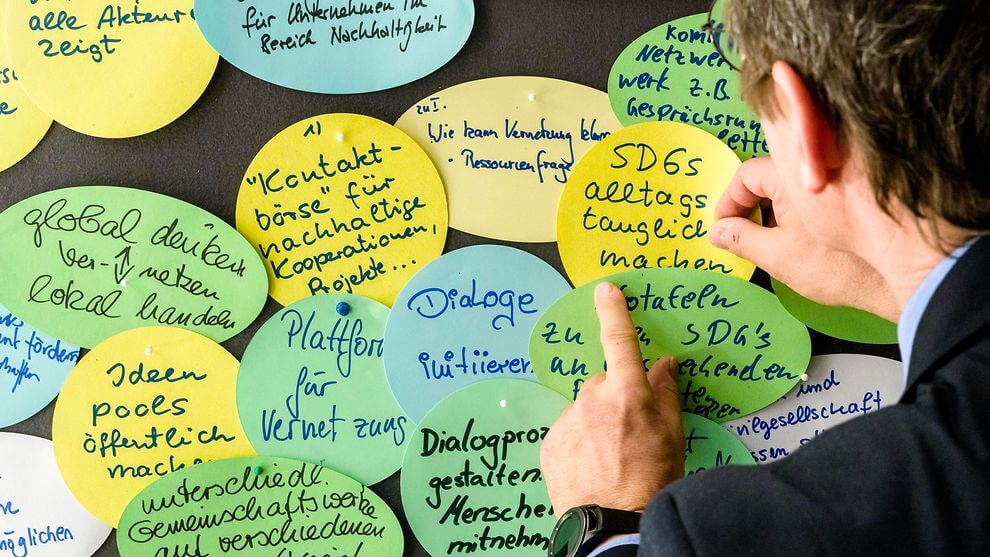 alle Akteure
zeigt
für Unternehmen im
Bereich Nachhaltigkeit
Netzwer
werk z.B
Gesprächsru
zu I.
Wie kann Vernetzung
• Ressourcenfrage
1)
"Kontakt-
börse" für
nachhaltige
Kooperationen,
Projekte...
SDGs
alltags
tauglich
machen
global denken
ver- ↕ netzen
lokal handeln
Dialoge
initiieren
otafeln
zu SDG's
Plattform
für
Vernetzung
Ideen
pools
öffentlich
machen
fördern
und
ilgesellschaft
Dialogproz
gestalten.
Menschen
mitnehm
unterschiedl.
Gemeinschaftswerke
auf verschiedenen
möglichen